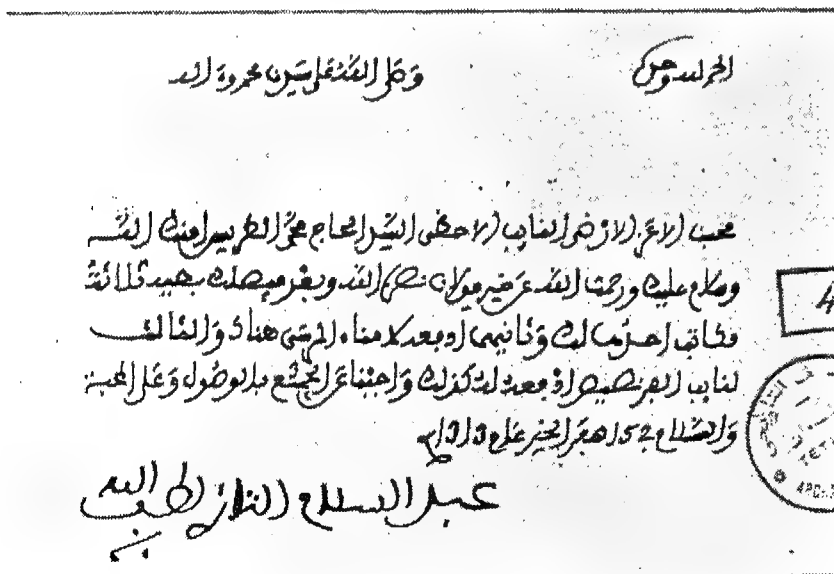 الحمد لله وحده
وصلى الله على سيدنا محمد وآله
محبنا الاعز الارضى النايب الاحظى السيد الحاج محمد الطريس امنك الله
وسلام عليك ورحمت الله عن خير مولانا نصره الله وبعد فيصلك بهيد ثلاثة
مكاتب احدها لك وثانيهما ادفعه لامناء المرسى هناك والثالث
لنايب الفرنصيص ادفعه له كذلك واجبنا عن الجميع بالوصول وعلى المحبة
والسلام في 25 صفر الخير عام 1313
عبد السلام التازي لطف الله
به
4